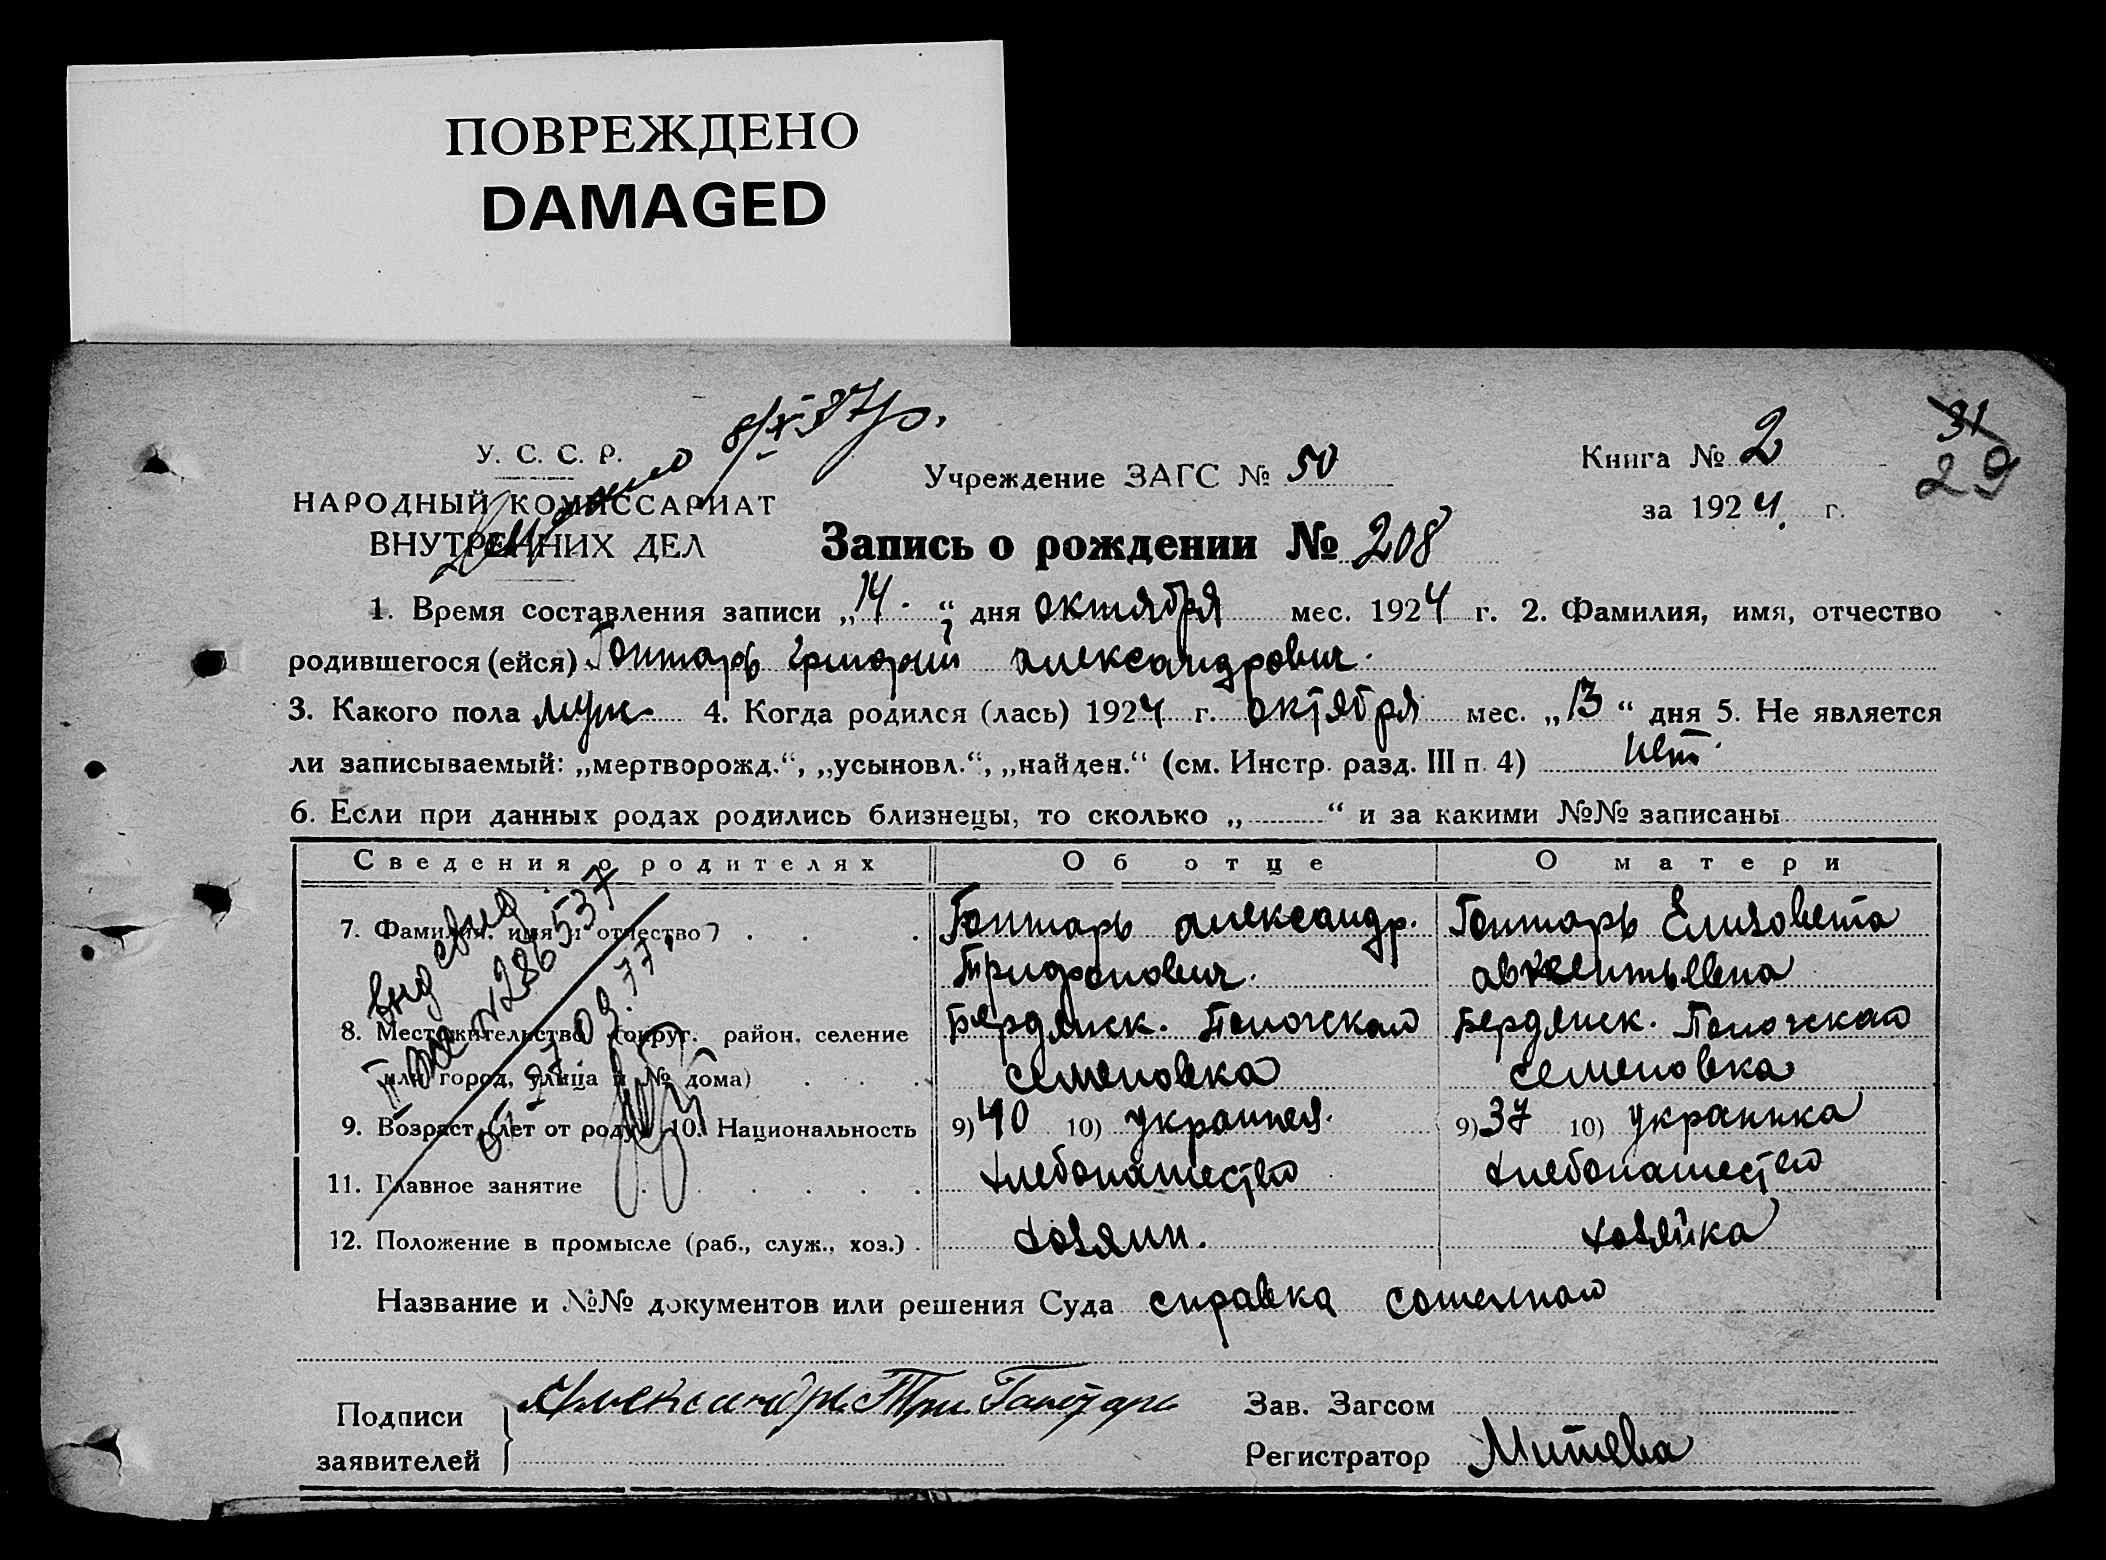 ПОВРЕЖДЕНО
DAMAGED
31
29
8/X 37 г.
У. С. С. Р.
НАРОДНЫЙ КОМИССАРИАТ
ВНУТРЕННИХ ДЕЛ
Учреждение ЗАГС № 50
Книга № 2
за 1924 г.
Запись о рождении № 208
1. Время составления записи „14.“ дня октября мес. 1924 г. 2. Фамилия, имя, отчество
родившегося (ейся) Гонтарь Григорий Александрович.
3. Какого пола муж. 4. Когда родился (лась) 1924 г. октября мес. „13“ дня 5. Не является
ли записываемый: „мертворожд.“, „усыновл.“, „найден.“ (см. Инстр. разд. III п. 4) нет.
6. Если при данных родах родились близнецы, то сколько „ “ и за какими №№ записаны
Сведения о родителях Об отце О матери
7. Фамилия, имя и отчество Гонтарь Александр. Гонтарь Елизовета
Трифонович. Авксентьевна
8. Местожительство (округ, район, селение Бердянск. Пологского Бердянск. Пологского
или город, улица и № дома) Семеновка Семеновка
9. Возраст (лет от роду) 10. Национальность 9) 40 10) украинец. 9) 37 10) украинка
11. Главное занятие хлебопашество хлебопашество
12. Положение в промысле (раб., служ., хоз.) хозяин. хозяйка
выд св-во
№ 286537
27.09.77.
Название и №№ документов или решения Суда справка сотенного
Подписи заявителей Александр Три. Гонтарь
Зав. Загсом
Регистратор Митева